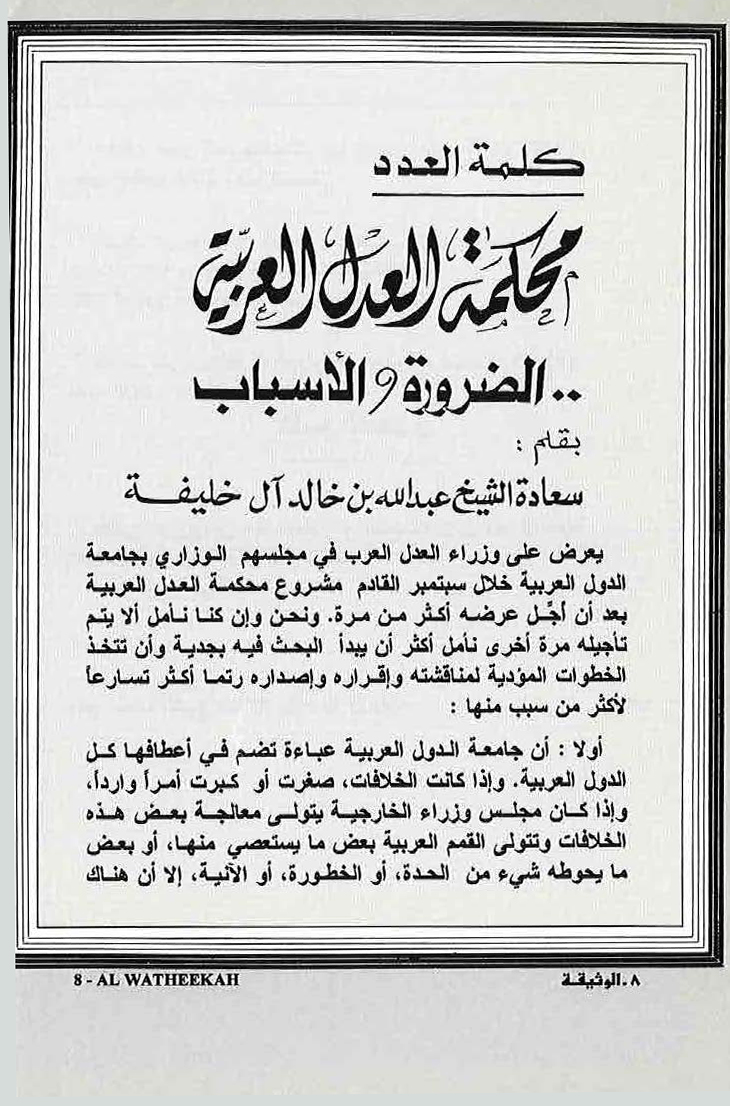 كلمة العدد
محكمة العدل العربية
.. الضرورة والأسباب
بقلم :
سعادة الشيخ عبدالله بن خالد آل خليفة
يعرض على وزراء العدل العرب في مجلسهم الوزاري بجامعة
الدول العربية خلال سبتمبر القادم مشروع محكمة العدل العربية
بعد أن أجّل عرضه أكثر من مرة. ونحن وإن كنا نأمل ألا يتم
تأجيله مرة أخرى نأمل أكثر أن يبدأ البحث فيه بجدية وأن تتخذ
الخطوات المؤدية لمناقشته وإقراره وإصداره رتما أكثر تسارعاً
لأكثر من سبب منها :
أولا : أن جامعة الدول العربية عباءة تضم في أعطافها كل
الدول العربية. وإذا كانت الخلافات، صغرت أو كبرت أمراً وارداً،
وإذا كان مجلس وزراء الخارجية يتولى معالجة بعض هذه
الخلافات وتتولى القمم العربية بعض ما يستعصي منها، أو بعض
ما يحوطه شيء من الحدة، أو الخطورة، أو الآنية، إلا أن هناك
٨ ـ الوثيقة
8 - AL WATHEEKAH